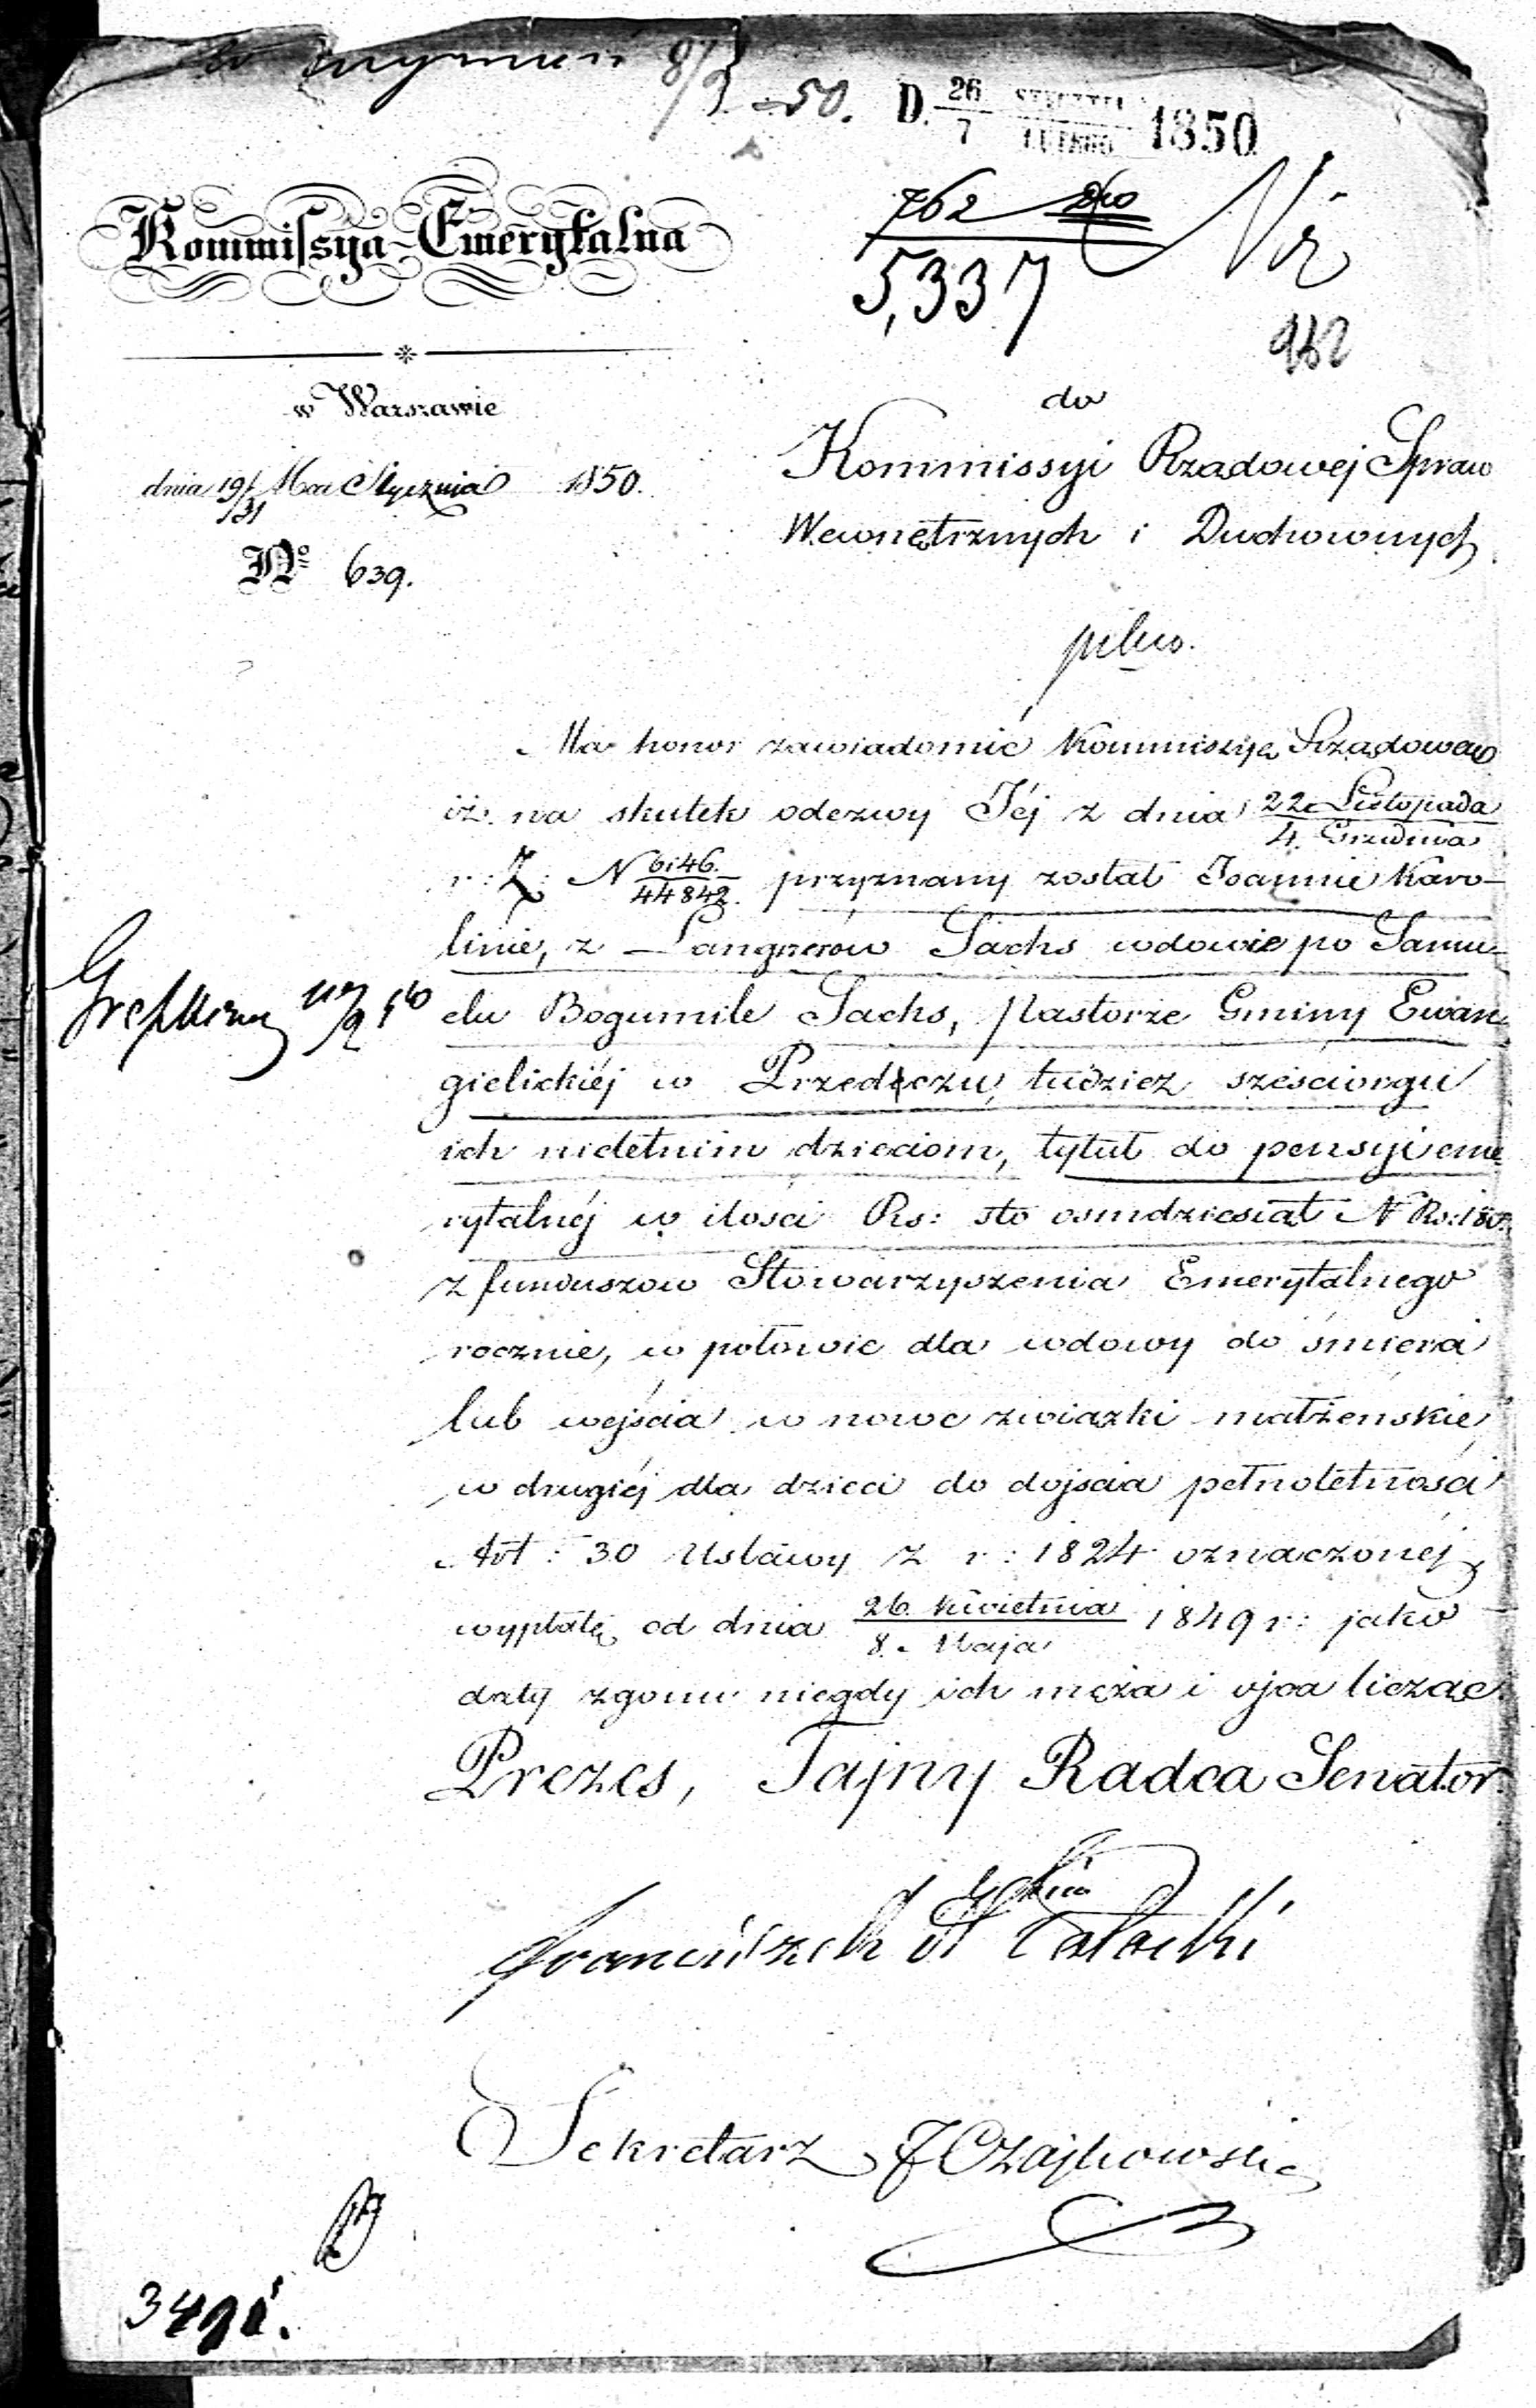 8/3 50.
D. 26/7 STYCZNIA/LUTEGO 1850
Kommissya Emerytalna
762
5,337
w Warszawie
do
Kommissyi Rządowej Spraw
dnia 19/31 Mca Stycznia 1850.
Wewnętrznych i Duchownych
No 639.
Ma honor zawiadomić Kommissyę Rządową
iż na skutek odezwy Jéj z dnia 22 Listopada/4 Grudnia
r: z: N 6146/44842 przyznany został Joannie Karo-
linie, z Langnerów Sachs wdowie po Samu-
elu Bogumile Sachs, Pastorze Gminy Ewan-
gielickiéj w Przedeczu, tudzież sześciorgu
ich nieletnim dzieciom, tytuł do pensyi eme
rytalnéj w ilości Rs: sto ośmdziesiąt N Rs: 180.
z funduszów Stowarzyszenia Emerytalnego
rocznie, w połowie dla wdowy do śmierci
lub wejścia w nowe związki małżeńskie,
w drugiéj dla dzieci do dojścia pełnoletności
Art: 30 Ustawy z r: 1824 oznaczonéj,
wypłatę od dnia 26 Kwietnia/8 Maja 1849 r: jako
daty zgonu niegdy ich męża i ojca licząc.
Prezes, Tajny Radca Senator
Franciszek Potocki
Sekretarz J Czajkowski